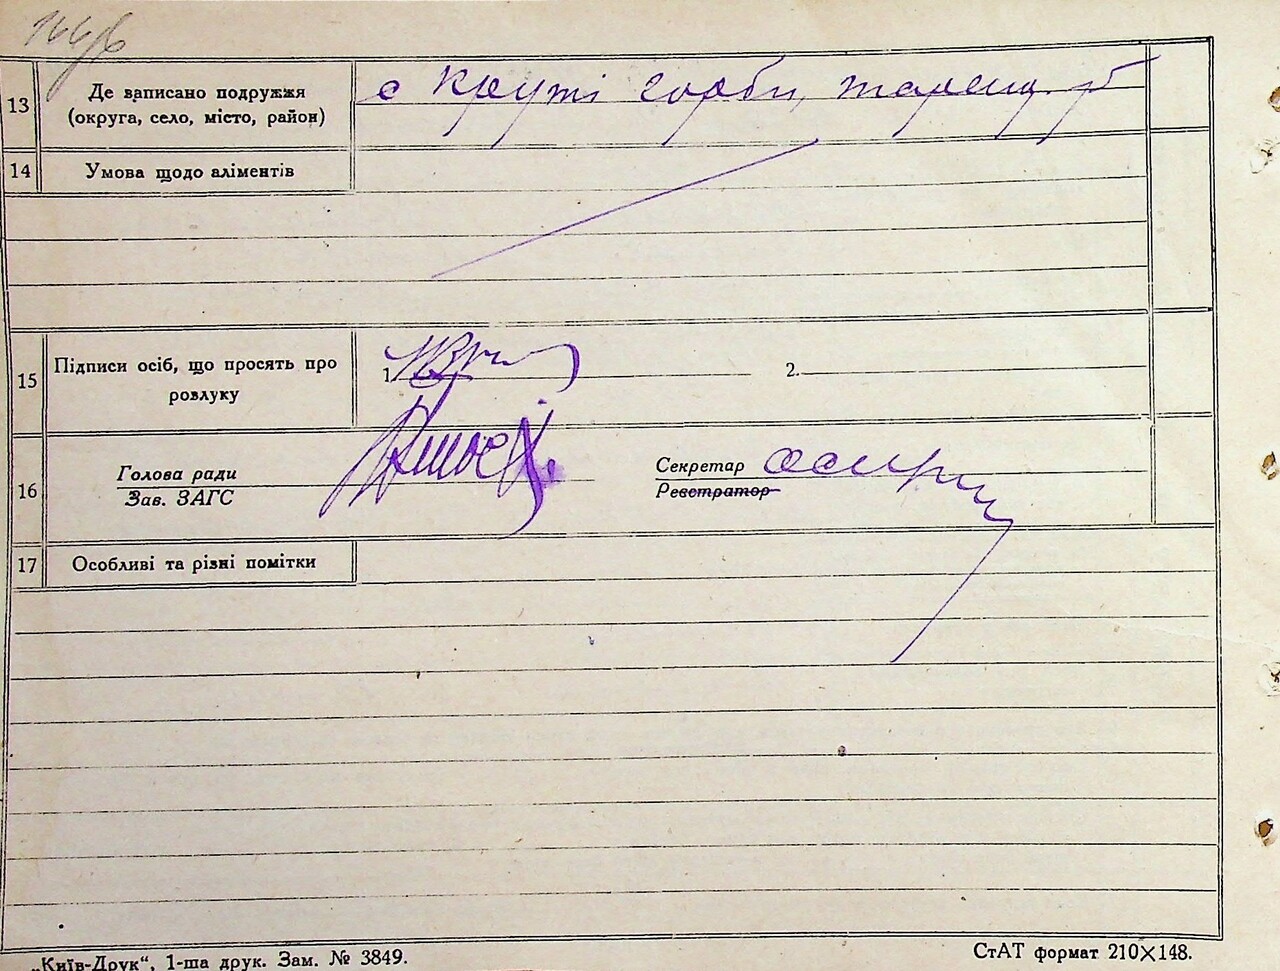 13 Де записано подружжя
(округа, село, місто, район)
с Круті горби, таращ. р
14 Умова щодо аліментів
15 Підписи осіб, що просять про
розлуку
1. 2.
16 Голова ради
Зав. ЗАГС
Секретар
Реєстратор
17 Особливі та різні помітки
„Київ-Друк“, 1-ша друк. Зам. № 3849.
СтАТ формат 210×148.